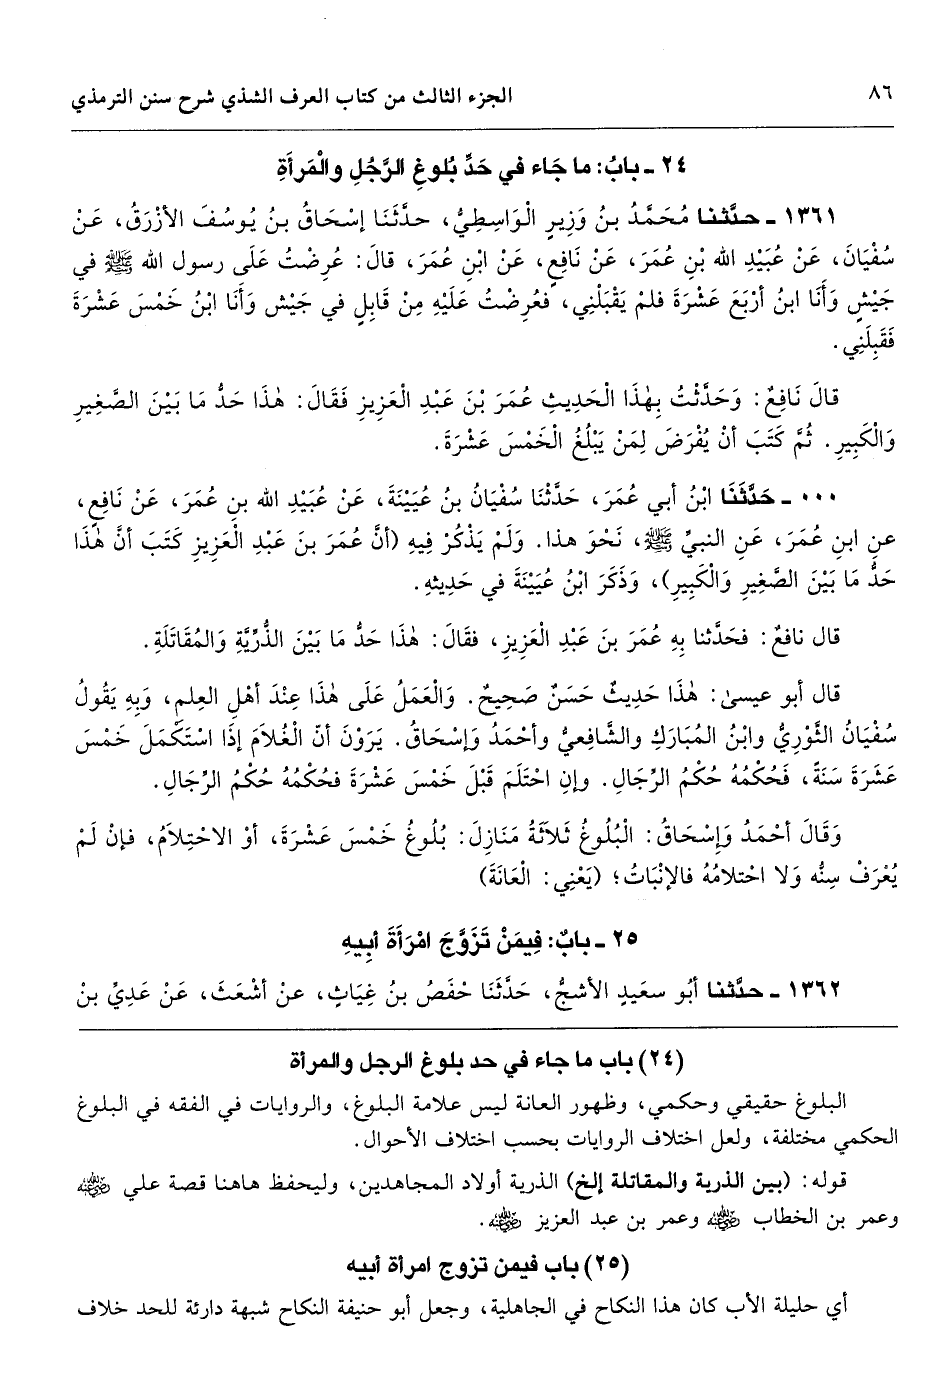 ٨٦ الجزء الثالث من كتاب العرف الشذي شرح سنن الترمذي
٢٤ ـ بابُ: ما جَاء في حَدِّ بُلوغِ الرَّجُلِ والْمَرأَةِ
١٣٦١ ـ حدَّثنا مُحَمَّدُ بنُ وَزِيرٍ الْوَاسِطِيُّ، حدَّثَنَا إسْحَاقُ بنُ يُوسُفَ الأزْرَقُ، عَنْ
سُفْيَانَ، عَنْ عُبَيْدِ الله بْنِ عُمَرَ، عَنْ نَافِعٍ، عَنْ ابْنِ عُمَرَ، قالَ: عُرِضْتُ عَلَى رسول الله ﷺ في
جَيْشٍ وَأَنَا ابنُ أرْبَعَ عَشْرَةَ فلمْ يَقْبَلْنِي، فَعُرِضْتُ عَلَيْهِ مِنْ قَابِلٍ في جَيْشٍ وَأَنَا ابْنُ خَمْسَ عَشْرَةَ
فَقَبِلَنِي.
قالَ نَافِعٌ: وَحَدَّثْتُ بِهٰذَا الْحَدِيثِ عُمَرَ بْنَ عَبْدِ الْعَزِيزِ فَقَالَ: هٰذَا حَدُّ مَا بَيْنَ الصَّغِيرِ
وَالْكَبِيرِ. ثُمَّ كَتَبَ أنْ يُفْرَضَ لِمَنْ يَبْلُغُ الْخَمْسَ عَشْرَةَ.
٠٠٠ ـ حَدَّثَنَا ابْنُ أبي عُمَرَ، حَدَّثَنَا سُفْيَانُ بنُ عُيَيْنَةَ، عَنْ عُبَيْدِ الله بنِ عُمَرَ، عَنْ نَافِعٍ،
عنِ ابنِ عُمَرَ، عَنِ النبيِّ ﷺ، نَحْوَ هذا. وَلَمْ يَذْكُرْ فِيهِ (أنَّ عُمَرَ بنَ عَبْدِ الْعَزِيزِ كَتَبَ أنَّ هٰذَا
حَدُّ مَا بَيْنَ الصَّغِيرِ وَالْكَبِيرِ)، وَذَكَرَ ابْنُ عُيَيْنَةَ في حَدِيثِهِ.
قال نافعٌ: فحَدَّثنا بِهِ عُمَرَ بنَ عَبْدِ الْعَزِيزِ، فقَالَ: هٰذَا حَدُّ مَا بَيْنَ الذُّرِّيَّةِ وَالمُقَاتَلَةِ.
قال أبو عيسىٰ: هٰذَا حَدِيثٌ حَسَنٌ صَحِيحٌ. وَالْعَمَلُ عَلَى هٰذَا عِنْدَ أهْلِ العِلمِ، وَبِهِ يَقُولُ
سُفْيَانُ الثَّوْرِيُّ وابْنُ المُبَارَكِ والشَّافِعيُّ وأحْمَدُ وَإسْحَاقُ. يَرَوْنَ أنّ الْغُلاَمَ إذَا اسْتَكْمَلَ خَمْسَ
عَشَرَةَ سَنَةً، فَحُكْمُهُ حُكْمُ الرِّجَالِ. وإنِ احْتَلَمَ قَبْلَ خَمْسَ عَشْرَةَ فحُكْمُهُ حُكْمُ الرِّجَالِ.
وَقَالَ أحْمَدُ وَإسْحَاقُ: الْبُلُوغُ ثَلاَثَةُ مَنَازِلَ: بُلُوغُ خَمْسَ عَشْرَةَ، أوْ الاحْتِلاَمُ، فإنْ لَمْ
يُعْرَفْ سِنُّه وَلا احْتلامُهُ فالإنْبَاتُ؛ (يَعْنِي: الْعَانَةَ)
٢٥ ـ بابٌ: فِيمَنْ تَزَوَّجَ امْرَأَةَ أبِيهِ
١٣٦٢ ـ حدَّثنا أبُو سعَيدٍ الأشجُّ، حَدَّثَنَا حْفَصُ بنُ غِيَاثٍ، عنْ أشْعَثَ، عَنْ عَدِيِّ بنِ
(٢٤) باب ما جاء في حد بلوغ الرجل والمرأة
البلوغ حقيقي وحكمي، وظهور العانة ليس علامة البلوغ، والروايات في الفقه في البلوغ
الحكمي مختلفة، ولعل اختلاف الروايات بحسب اختلاف الأحوال.
قوله: (بين الذرية والمقاتلة إلخ) الذرية أولاد المجاهدين، وليحفظ هاهنا قصة علي رضي الله عنه
وعمر بن الخطاب رضي الله عنه وعمر بن عبد العزيز رضي الله عنه.
(٢٥) باب فيمن تزوج امرأة أبيه
أي حليلة الأب كان هذا النكاح في الجاهلية، وجعل أبو حنيفة النكاح شبهة دارئة للحد خلاف